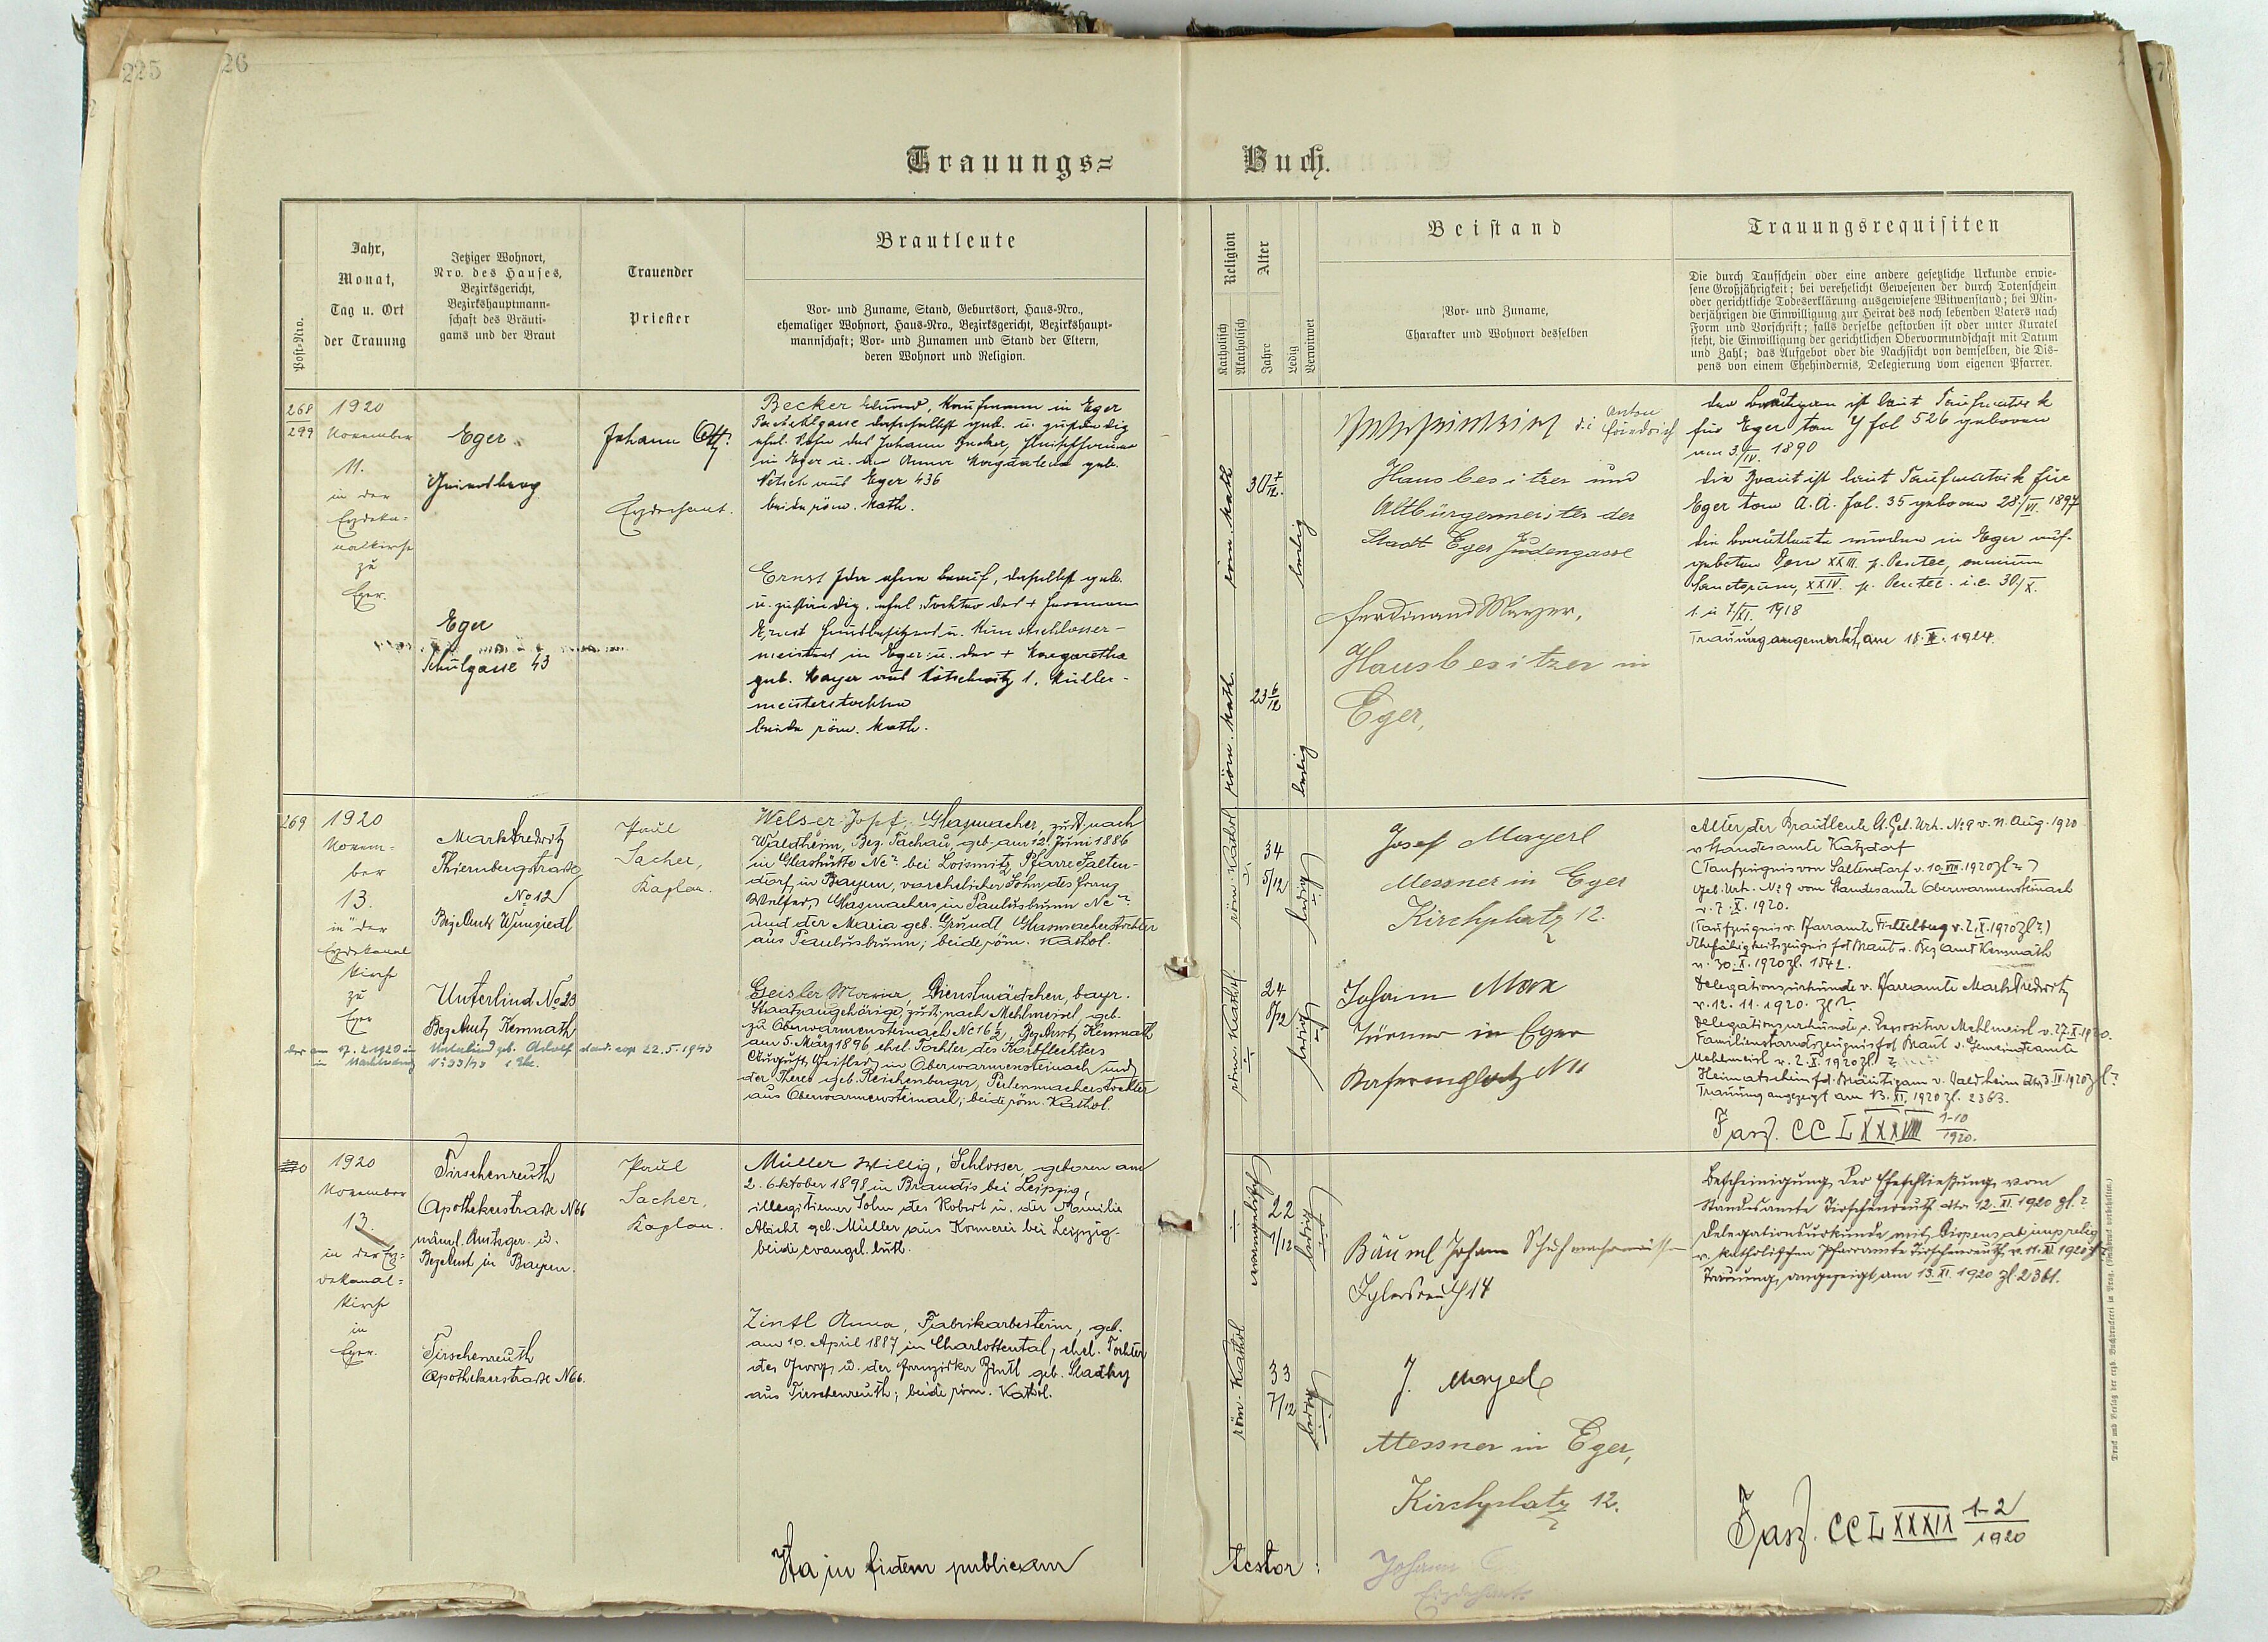 225
26
Trauungs=
Buch.
Post-Nro.
Jahr,
Monat,
Tag u. Ort
der Trauung
Jetziger Wohnort,
Nro. des Hauses,
Bezirksgericht,
Bezirkshauptmann-
schaft des Bräuti-
gams und der Braut
Trauender
Priester
Brautleute
Vor- und Zuname, Stand, Geburtsort, Haus-Nro.,
ehemaliger Wohnort, Haus-Nro., Bezirksgericht, Bezirkshaupt-
mannschaft; Vor- und Zunamen und Stand der Eltern,
deren Wohnort und Religion.
Religion
Katholisch
Akatholisch
Alter
Jahre
Ledig
Verwitwet
Beistand
Vor- und Zuname,
Charakter und Wohnort desselben
Trauungsrequisiten
Die durch Taufschein oder eine andere gesetzliche Urkunde erwie-
sene Großjährigkeit; bei verehelicht Gewesenen der durch Totenschein
oder gerichtliche Todeserklärung ausgewiesene Witwenstand; bei Min-
derjährigen die Einwilligung zur Heirat des noch lebenden Vaters nach
Form und Vorschrift; falls derselbe gestorben ist oder unter Kuratel
steht, die Einwilligung der gerichtlichen Obervormundschaft mit Datum
und Zahl; das Aufgebot oder die Nachsicht von demselben, die Dis-
pens von einem Ehehindernis, Delegierung vom eigenen Pfarrer.
268
299
1920
November
11.
in der
Erzdeka-
nalkirche
zu
Eger.
Eger
Eger
Schulgasse 43
Johann
Erzdechant.
Becker Eduard, Kaufmann in Eger
daselbst geb. u. zuständig
ehel. Sohn des Johann Becker,
in Eger u. der Anna Magdalena geb.
aus Eger 436
beide röm. kath.
Ernst Ida ohne Beruf, daselbst geb.
u. zuständig, ehel. Tochter des +
Ernst Hausbesitzers u. Kunstschlosser-
meisters in Eger u. der + Margaretha
geb. Mayer aus 1. Müller-
meisterstochter
beide röm. kath.
röm. kath.
30 7/12.
ledig
röm. kath.
23 6/12
ledig
d. i. Anton
Friedrich
Hausbesitzer und
Altbürgermeister der
Stadt Eger Judengasse
Ferdinand Mayer,
Hausbesitzer in
Eger,
der Bräutigam ist laut Taufmatrik
für Eger tom Y fol 526 geboren
am 3./IV. 1890
die Braut ist laut Taufmatrik für
Eger tom A.A. fol. 35 geboren 28./VI. 1897
die Brautleute wurden in Eger auf-
geboten Dom XXIII. p. Pentec, omnium
Sanctorum, XXIV. p. Pentec. i.e. 30/X.
1. u 7./XI. 1918
Trauung angemerkt am
269
1920
Novem-
ber
13.
in der
Erzdekanal
kirche
zu
Eger
Marktredwitz
Thiernbergstraße
No 12
Bez.Amt Wunsiedl
Unterlind No 23
Bez.Amt Kemnath
22.5.1943
Paul
Sacher,
Kaplan.
Welser Josef, Glasmacher, zust. nach
Waldheim, Bez. Tachau, geb. am 12. Juni 1886
in Glashütte Nc? bei Loisnitz, Pfarre Salten-
dorf in Bayern, unehelicher Sohn des Franz
Welser, Glasmachers in Paulusbrunn Nc?
und der Maria geb. Gründl, Glasmacherstochter
aus Paulusbrunn; beide röm. kathol.
Geisler Maria, Dienstmädchen, bayr.
Staatsangehörige, zust. nach Mehlmeisel, geb.
zu Oberwarmensteinach Nc 16 1/2, Bez.Amt Kemnath
am 5. März 1896 ehel. Tochter des Korbflechters
August Geisler in Oberwarmensteinach und
der Theres geb. Reichenberger, Perlenmacherstochter
aus Oberwarmensteinach; beide röm. Kathol.
röm. Kathol.
34
5/12
ledig
röm. Kathol.
24
8/12
ledig
Josef Mayerl
Messner in Eger
Kirchplatz 12.
Johann Marx
Türmer in Eger
Alter der Brautleute G. Geb. Urk. No 9 v. 11. Aug. 1920
v. Standesamte Katzdorf
(Taufzeugnis von Saltendorf v. 10.VIII.1920 zl ?)
Geb. Urk. No 9 vom Standesamte Oberwarmensteinach
v. 7. X. 1920.
(Taufzeugnis v. Pfarramte Fichtelberg v. 2.X.1920 zl ?)
Ehefähigkeitszeugnis f. d. Braut v. Bez.amt Kemnath
v. 30. X. 1920 zl. 1542.
Delegationsurkunde v. Pfarramte Marktredwitz
v. 12. 11. 1920. zl ?
Delegationsurkunde v. Expositur Mehlmeisl v. 27.X.1920.
Familienstandszeugnis f. d. Braut v. Gemeindeamte
Mehlmeisl v. 2.X.1920 zl ?
Heimatschein f. d. Bräutigam v. Waldheim 1920 zl ?
Trauung angezeigt am 13. XI. 1920 zl. 2363.
Fasz. CCLXXXVIII 1-10/1920.
1920
November
13.
in der Erz-
dekanal-
kirche
in
Eger.
Tirschenreuth
Apothekerstraße N 66
Bez.Amt in Bayern.
Tirschenreuth
Apothekerstraße N 66.
Paul
Sacher,
Kaplan.
Müller Willy, Schlosser, geboren am
2. Oktober 1898 in Brandis bei Leipzig,
illegitimer Sohn des Robert u. der Emilie
Abicht geb. Müller aus bei Leipzig.
beide evangel. luth.
Zintl Anna, Fabrikarbeiterin, geb.
am 10. April 1887 in Charlottental, ehel. Tochter
des Georg u. der Franziska Zintl geb. Stadky
aus Tirschenreuth; beide röm. Kathol.
evangelisch
22
1/12
ledig
röm. Kathol
33
7/12
ledig
Bäuml Johann Schuhmachermeister
14
J. Mayerl
Messner in Eger,
Kirchplatz 12.
Bescheinigung der Eheschließung vom
Standesamte Tirschenreuth dto 12. XI. 1920 zl. ?
Delegationsurkunde mit Dispens ab imp. relig
v. katholischen Pfarramte Tirschenreuth v. 11. XI. 1920 zl ?
Trauung angezeigt am 13. XI. 1920 zl. 2361.
Fasz. CCLXXXIX 1-2/1920
Ita in fidem publicam
testor:
Johann
Erzdechant
Druck und Verlag der erzb. Buchdruckerei in Prag. (Nachdruck vorbehalten.)